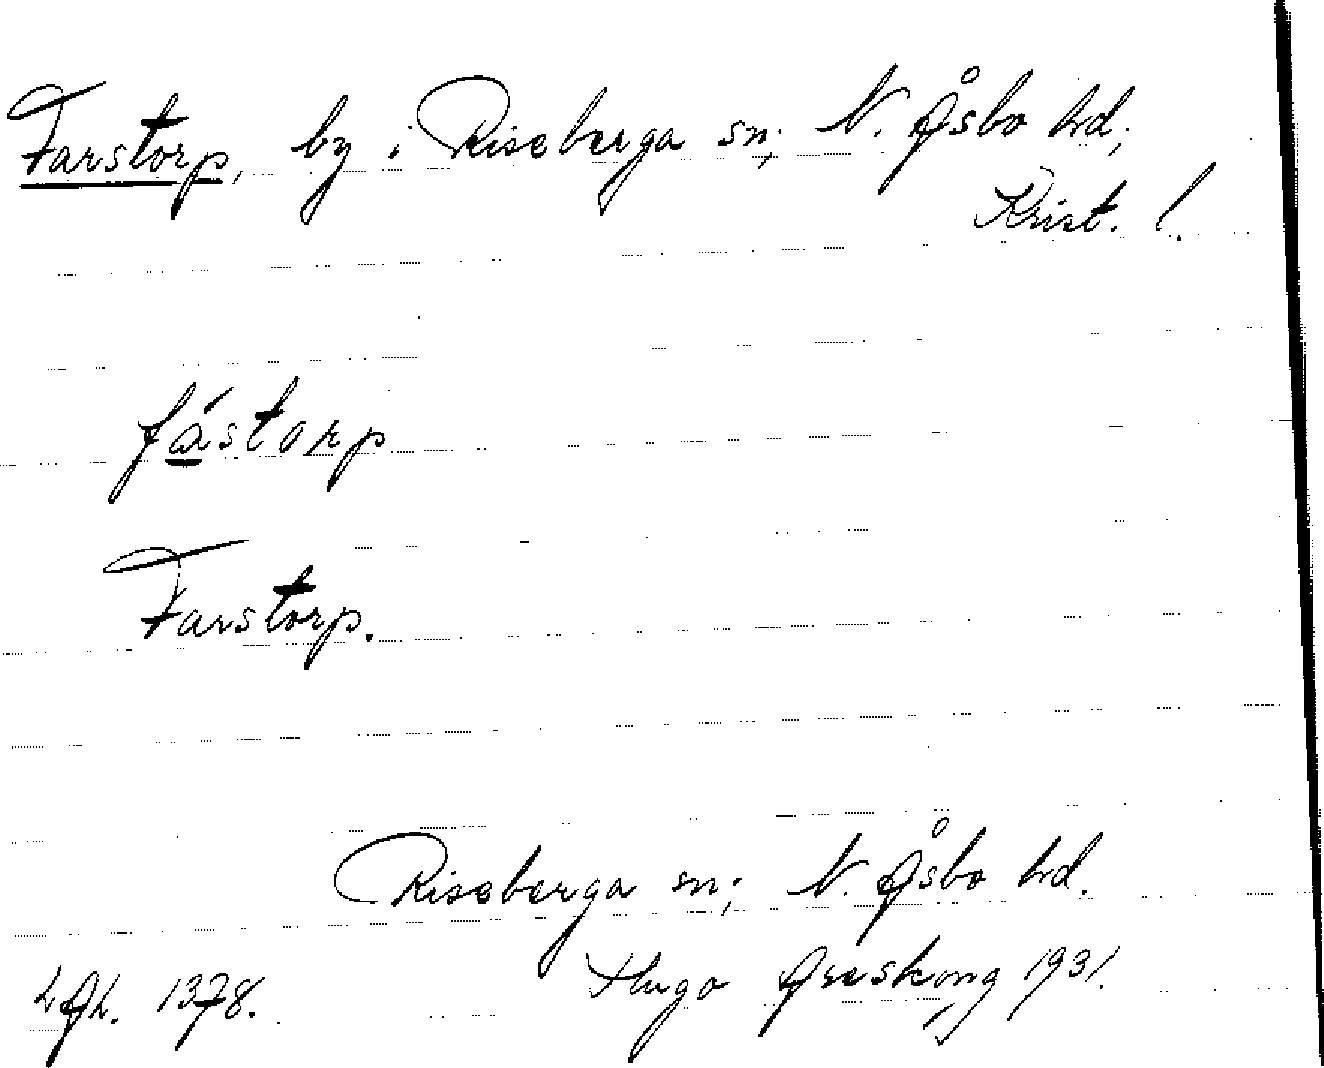 Farstorp, by i Riseberga sn; N. Åsbo hd;
Krist. l.
fá̲storp
Farstorp.
Riseberga sn; N. Åsbo hd.
LAL. 1378. Hugo Areskoug 1931.